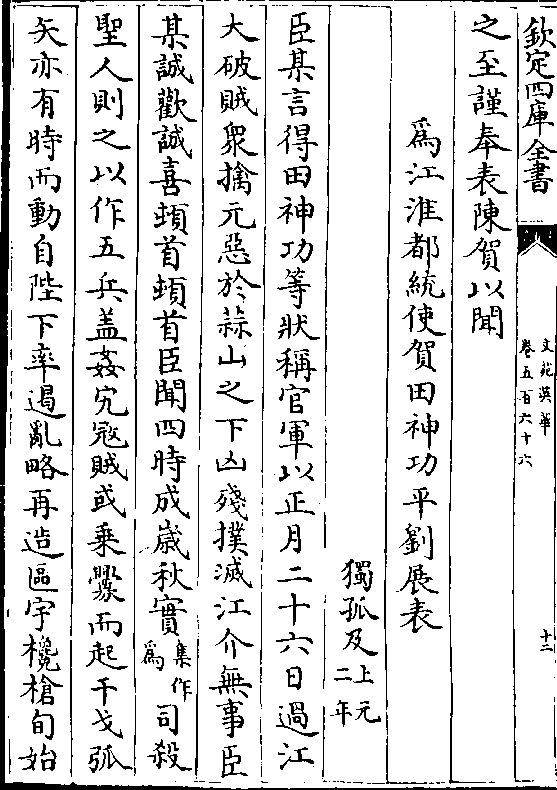 欽定四庫全書
文苑英華
卷五百六十六
十三
之至謹奉表陳賀以聞
爲江淮都統使賀田神功平劉展表
獨孤及上元二年
臣某言得田神功等狀稱官軍以正月二十六日過江
大破賊衆擒元惡於蒜山之下凶殘撲滅江介無事臣
某誠歡誠喜頓首頓首臣聞四時成歲秋實集作爲司殺
聖人則之以作五兵盖姦宄冦賊或乗釁而起干戈弧
矢亦有時而動自陛下率遏亂略再造區宇欃槍旬始